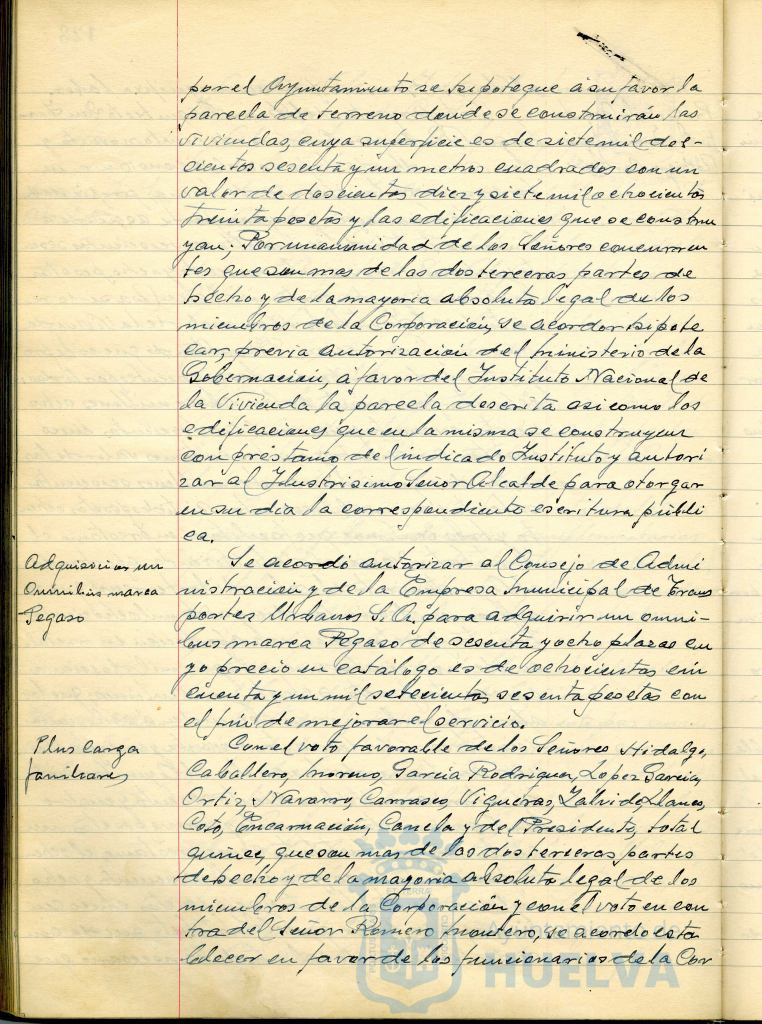 por el Ayuntamiento se hipoteque á su favor la
parcela de terreno donde se construirán las
viviendas, cuya superficie es de siete mil dos-
cientos sesenta y un metros cuadrados con un
valor de doscientas diez y siete mil ochocientas
treinta pesetas y las edificaciones que se constru
yan; Por unanimidad de los Señores concurren
tes que son mas de las dos terceras partes de
hecho y de la mayoria absoluta legal de los
miembros de la Corporación, se acordó hipote
car, previa autorización del Ministerio de la
Gobernación, á favor del Instituto Nacional de
la Vivienda la parcela descrita asi como las
edificaciones que en la misma se construyan
con préstamo del indicado Instituto y autori
zar al Ilustrisimo Señor Alcalde para otorgar
en su dia la correspondiente escritura públi
ca.
Adquisición un
Omnibus marca
Pegaso
Se acordó autorizar al Consejo de Admi
nistración y de la Empresa Municipal de Trans
portes Urbanos S.A. para adquirir un omni-
bus marca Pegaso de sesenta y ocho plazas cu
yo precio en catálogo es de ochocientas cin
cuenta y un mil setecientas sesenta pesetas con
el fin de mejorar el servicio.
Plus carga
familiares
Con el voto favorable de los Señores Hidalgo,
Caballero, Moreno, Garcia Rodriguez, Lopez Garcia,
Ortiz, Navarro, Carrasco, Vigueras, Zalvide Llanes,
Coto, Encarnación, Canela y del Presidente, total
quince, que son mas de las dos terceras partes
de hecho y de la mayoria absoluta legal de los
miembros de la Corporación y con el voto en con
tra del Señor Romero Montero, se acordó esta
blecer en favor de los funcionarios de la Cor
HUELVA